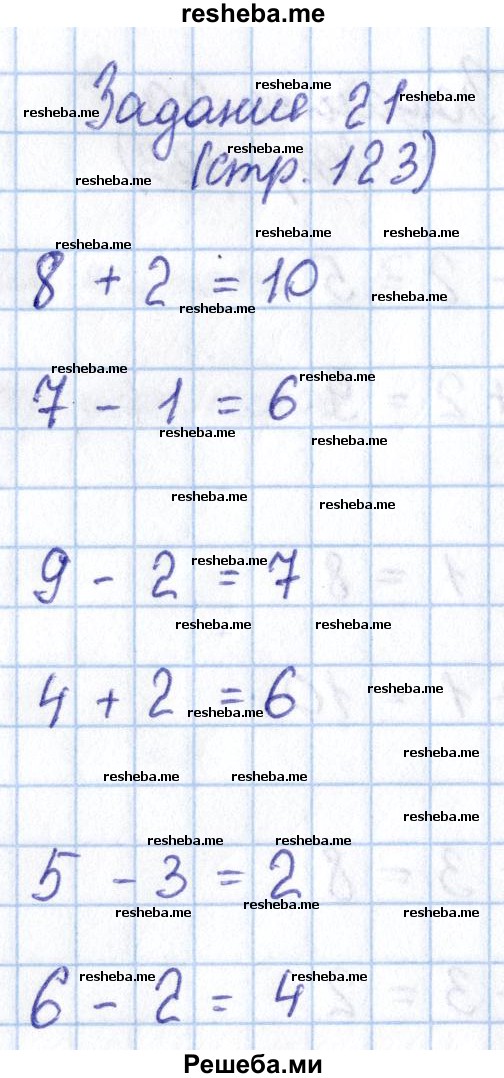 resheba.me
resheba.me
Задание 21
resheba.me
resheba.me
resheba.me
(стр. 123)
resheba.me
resheba.me
resheba.me
resheba.me
8 + 2 = 10
resheba.me
resheba.me
resheba.me
resheba.me
7 - 1 = 6
resheba.me
resheba.me
resheba.me
resheba.me
resheba.me
9 - 2 = 7
resheba.me
resheba.me
resheba.me
4 + 2 = 6
resheba.me
resheba.me
resheba.me
resheba.me
resheba.me
resheba.me
resheba.me
5 - 3 = 2
resheba.me
resheba.me
resheba.me
resheba.me
resheba.me
6 - 2 = 4
Решеба.ми